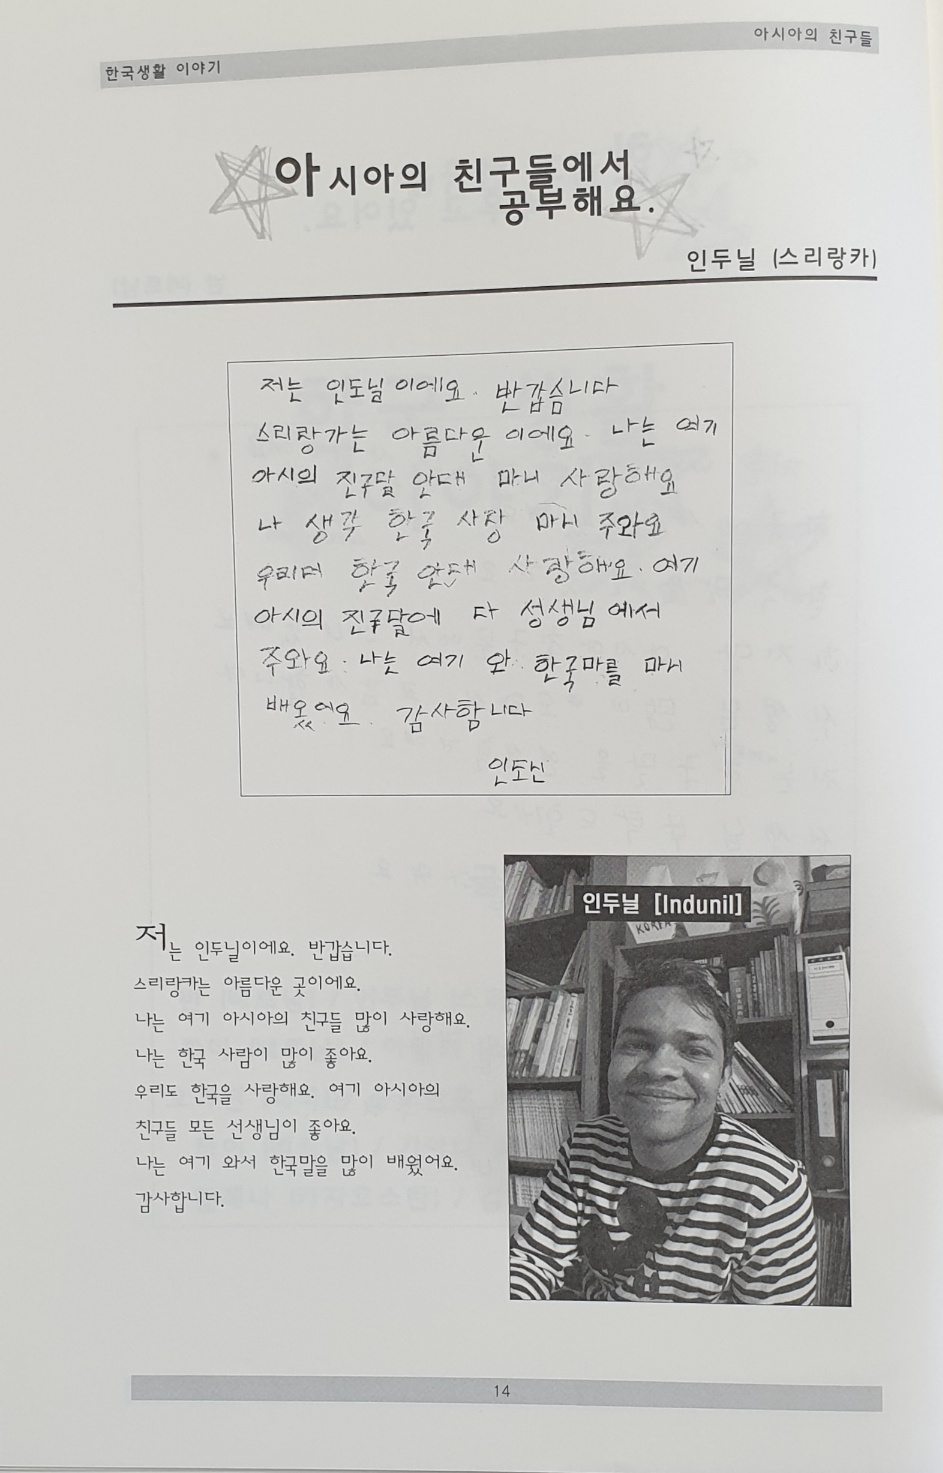 한국생활 이야기
아시아의 친구들
아시아의 친구들에서
공부해요.
인두닐 (스리랑카)
저는 인도닐 이에요. 반갑습니다
스리랑가는 아름다운 이에요. 나는 여기
아시의 진구닯 안대 마니 사랑해요
나 생각 한국 사장 마니 주와요
우리더 한국 안대 사랑해요. 여기
아시의 진구닯에 다 성생님 에서
주와요. 나는 여기 와. 한국마를 마니
배웠에요. 감사함니다
인도신
인두닐 [Indunil]
KOREA
저는 인두닐이에요. 반갑습니다.
스리랑카는 아름다운 곳이에요.
나는 여기 아시아의 친구들 많이 사랑해요.
나는 한국 사람이 많이 좋아요.
우리도 한국을 사랑해요. 여기 아시아의
친구들 모든 선생님이 좋아요.
나는 여기 와서 한국말을 많이 배웠어요.
감사합니다.
14